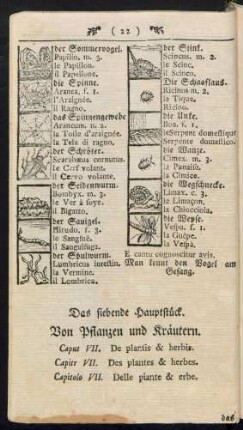 ( 22 )
der Sommervogel.
Papilio, m. 3.
le Papillon.
il Papilione.
die Spinne.
Aranea, f. 1.
l'Araignée.
il Ragno.
das Spinnengewebe
Araneum, n. 2.
la Toile d'araignée.
la Tela di ragno.
der Schröter.
Scarabæus cornutus.
le Cerf volant.
il Cervo volante.
der Seidenwurm.
Bombyx, m. 3.
le Ver à soye.
il Bigatto.
der Saugigel.
Hirudo, f. 3.
la Sangsuë.
il Sanguisuga.
der Spulwurm.
Lumbricus intestin.
la Vermine.
il Lombrico.
der Stink.
Scincus, m. 2.
le Scinc.
il Scinco.
Die Schaaflaus.
Ricinus m. 2.
la Tique.
Ricino.
die Unke.
Boa, f. 1.
le Serpent domestique
Serpe domestico.
die Wantze.
Cimex, m. 3.
la Punaise.
la Cimice.
die Wegschnecke.
Limax, c. 3.
le Limaçon.
la Chiocciola.
die Wespe.
Vespa, f. 1.
la Guêpe.
la Vespa.
E cantu cognoscitur avis.
Man kennt den Vogel am
Gesang.
Das siebende Hauptstück.
Von Pflanzen und Kräutern.
Caput VII. De plantis & herbis.
Capitr VII. Des plantes & herbes.
Capitolo VII. Delle piante & erbe.
das